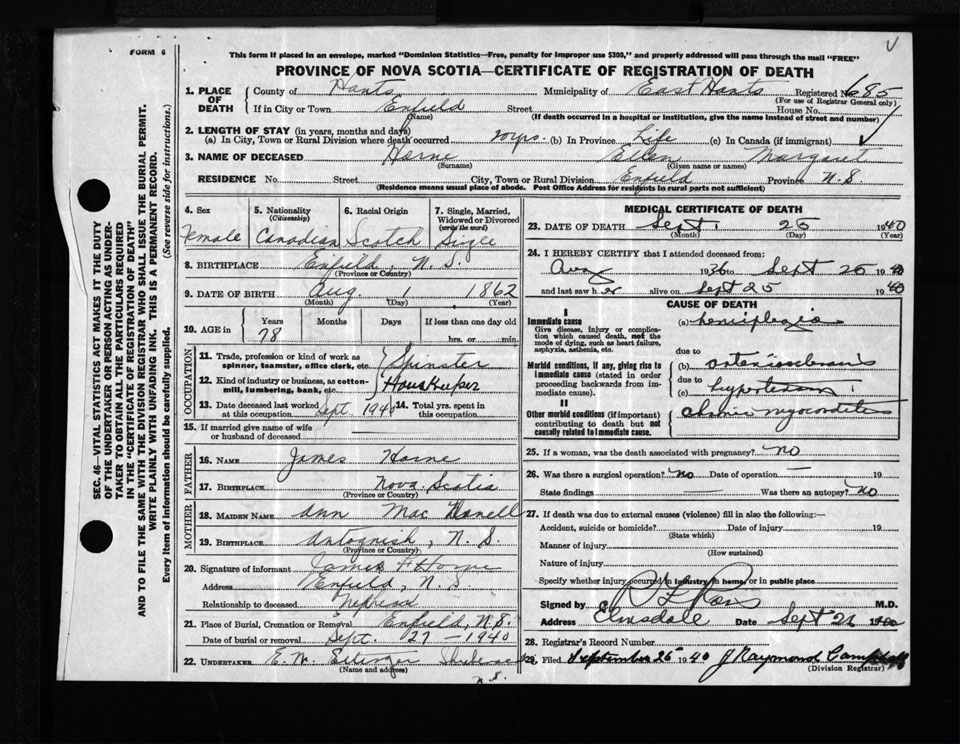 FORM 6
This form if placed in an envelope, marked "Dominion Statistics—Free, penalty for improper use $300," and properly addressed will pass through the mail "FREE"
PROVINCE OF NOVA SCOTIA—CERTIFICATE OF REGISTRATION OF DEATH
SEC. 46—VITAL STATISTICS ACT MAKES IT THE DUTY
OF THE UNDERTAKER OR PERSON ACTING AS UNDER-
TAKER TO OBTAIN ALL THE PARTICULARS REQUIRED
IN THE "CERTIFICATE OF REGISTRATION OF DEATH"
AND TO FILE THE SAME WITH THE DIVISION REGISTRAR WHO SHALL ISSUE THE BURIAL PERMIT.
WRITE PLAINLY WITH UNFADING INK. THIS IS A PERMANENT RECORD.
Every item of information should be carefully supplied. (See reverse side for instructions.)
1. PLACE OF DEATH County of Hants Municipality of East Hants Registered No. 685
(For use of Registrar General only)
If in City or Town Enfield Street House No.
(Name) (If death occurred in a hospital or institution, give the name instead of street and number)
2. LENGTH OF STAY (in years, months and days)
(a) In City, Town or Rural Division where death occurred yrs. (b) In Province Life (c) In Canada (if immigrant)
3. NAME OF DECEASED Horne Ellen Margaret
(Surname) (Given name or names)
RESIDENCE No. Street City, Town or Rural Division Enfield Province N.S.
(Residence means usual place of abode. Post Office Address for residents in rural parts not sufficient)
4. Sex Female
5. Nationality (Citizenship) Canadian
6. Racial Origin Scotch
7. Single, Married, Widowed or Divorced (write the word) Single
8. BIRTHPLACE Enfield, N.S.
(Province or Country)
9. DATE OF BIRTH Aug. 1 1862
(Month) (Day) (Year)
10. AGE in Years Months Days If less than one day old
78 hrs. or min.
OCCUPATION
11. Trade, profession or kind of work as spinner, teamster, office clerk, etc. Spinster
12. Kind of industry or business, as cotton-mill, lumbering, bank, etc. House Keeper
13. Date deceased last worked at this occupation Sept. 1940 14. Total yrs. spent in this occupation
15. If married give name of wife or husband of deceased
FATHER
16. NAME James Horne
17. BIRTHPLACE Nova Scotia
(Province or Country)
MOTHER
18. MAIDEN NAME Ann Mac
19. BIRTHPLACE Antognish, N.S.
(Province or Country)
20. Signature of informant James F Horne
Address Enfield, N.S.
Relationship to deceased Nephew
21. Place of Burial, Cremation or Removal Enfield, N.S.
Date of burial or removal Sept. 27—1940
22. UNDERTAKER E.W.
(Name and address)
N.S.
MEDICAL CERTIFICATE OF DEATH
23. DATE OF DEATH Sept. 25 1940
(Month) (Day) (Year)
24. I HEREBY CERTIFY that I attended deceased from:
Aug 1936 to Sept 25 1940
and last saw her alive on Sept 25 1940
CAUSE OF DEATH
I
Immediate cause
Give disease, injury or complication which caused death, not the mode of dying, such as heart failure, asphyxia, asthenia, etc.
(a) hemiplegia
due to
Morbid conditions, If any, giving rise to immediate cause (stated in order proceeding backwards from immediate cause).
(b) arteriosclerosis
due to
(c) hypertension
II
Other morbid conditions (if important) contributing to death but not causally related to immediate cause.
chronic myocarditis
25. If a woman, was the death associated with pregnancy? No
26. Was there a surgical operation? No Date of operation — 19
State findings — Was there an autopsy? No
27. If death was due to external causes (violence) fill in also the following:—
Accident, suicide or homicide? Date of injury 19
(State which)
Manner of injury
(How sustained)
Nature of injury
Specify whether injury occurred in industry, in home, or in public place
Signed by M.D.
Address Elmsdale Date Sept 26 1940
28. Registrar's Record Number
29. Filed September 26 1940 J Raymond Campbell
(Division Registrar)